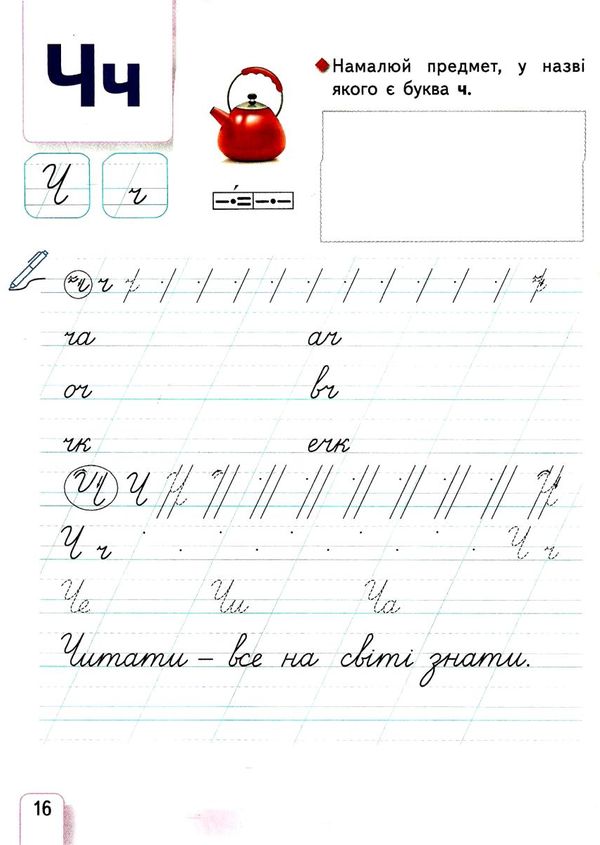 Чч
Намалюй предмет, у назві
якого є буква ч.
Ч ч
ч ч ч ч
ча ач
оч вч
чк ечк
Ч Ч Ч Ч Ч
Ч ч Ч ч
Че Чи Ча
Читати – все на світі знати.
16